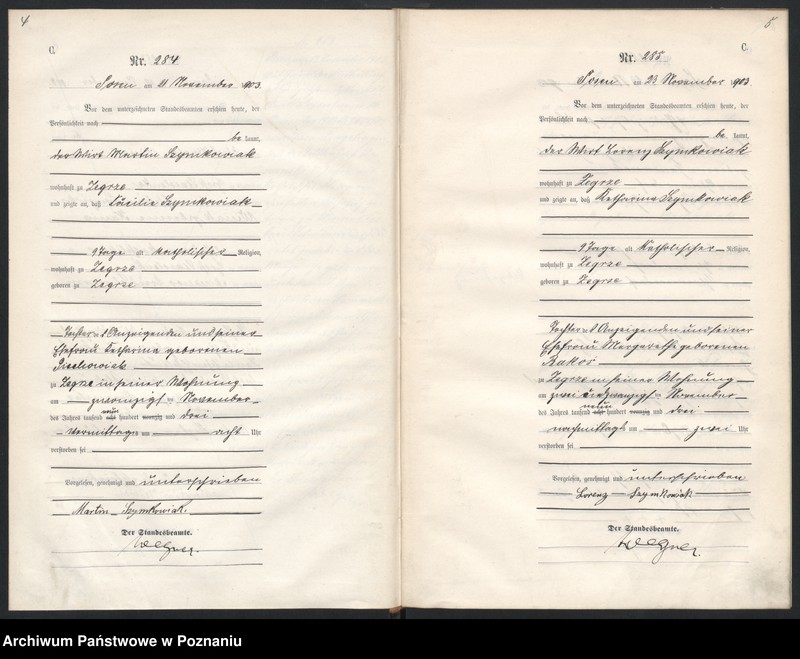 4
C.
Nr. 284
Posen am 21 November 903.
Vor dem unterzeichneten Standesbeamten erschien heute, der
Persönlichkeit nach
be kannt,
der Wirt Martin Szymkowiak
wohnhaft zu Zegrze
und zeigte an, daß Cäcilie Szymkowiak
9 Tage alt katholischer Religion,
wohnhaft zu Zegrze
geboren zu Zegrze
Tochter d Anzeigenden und seiner
Ehefrau Katharina geborenen
zu Zegrze in seiner Wohnung
am zwanzigst November
des Jahres tausend acht neun hundert neunzig und drei
Vormittags um acht Uhr
verstorben sei
Vorgelesen, genehmigt und unterschrieben
Martin Szymkowiak.
Der Standesbeamte.
Wegner.
5
C.
Nr. 285
Posen am 23 November 903
Vor dem unterzeichneten Standesbeamten erschien heute, der
Persönlichkeit nach
be kannt,
der Wirt Lorenz Szymkowiak
wohnhaft zu Zegrze
und zeigte an, daß Katharina Szymkowiak
9 Tage alt katholischer Religion,
wohnhaft zu Zegrze
geboren zu Zegrze
Tochter d Anzeigenden und seiner
Ehefrau Margareth geborenen
Rakoś
zu Zegrze in seiner Wohnung
am zwei und zwanzigst November
des Jahres tausend acht neun hundert neunzig und drei
nachmittags um zwei Uhr
verstorben sei
Vorgelesen, genehmigt und unterschrieben
Lorenz Szymkowiak
Der Standesbeamte.
Wegner.
Archiwum Państwowe w Poznaniu